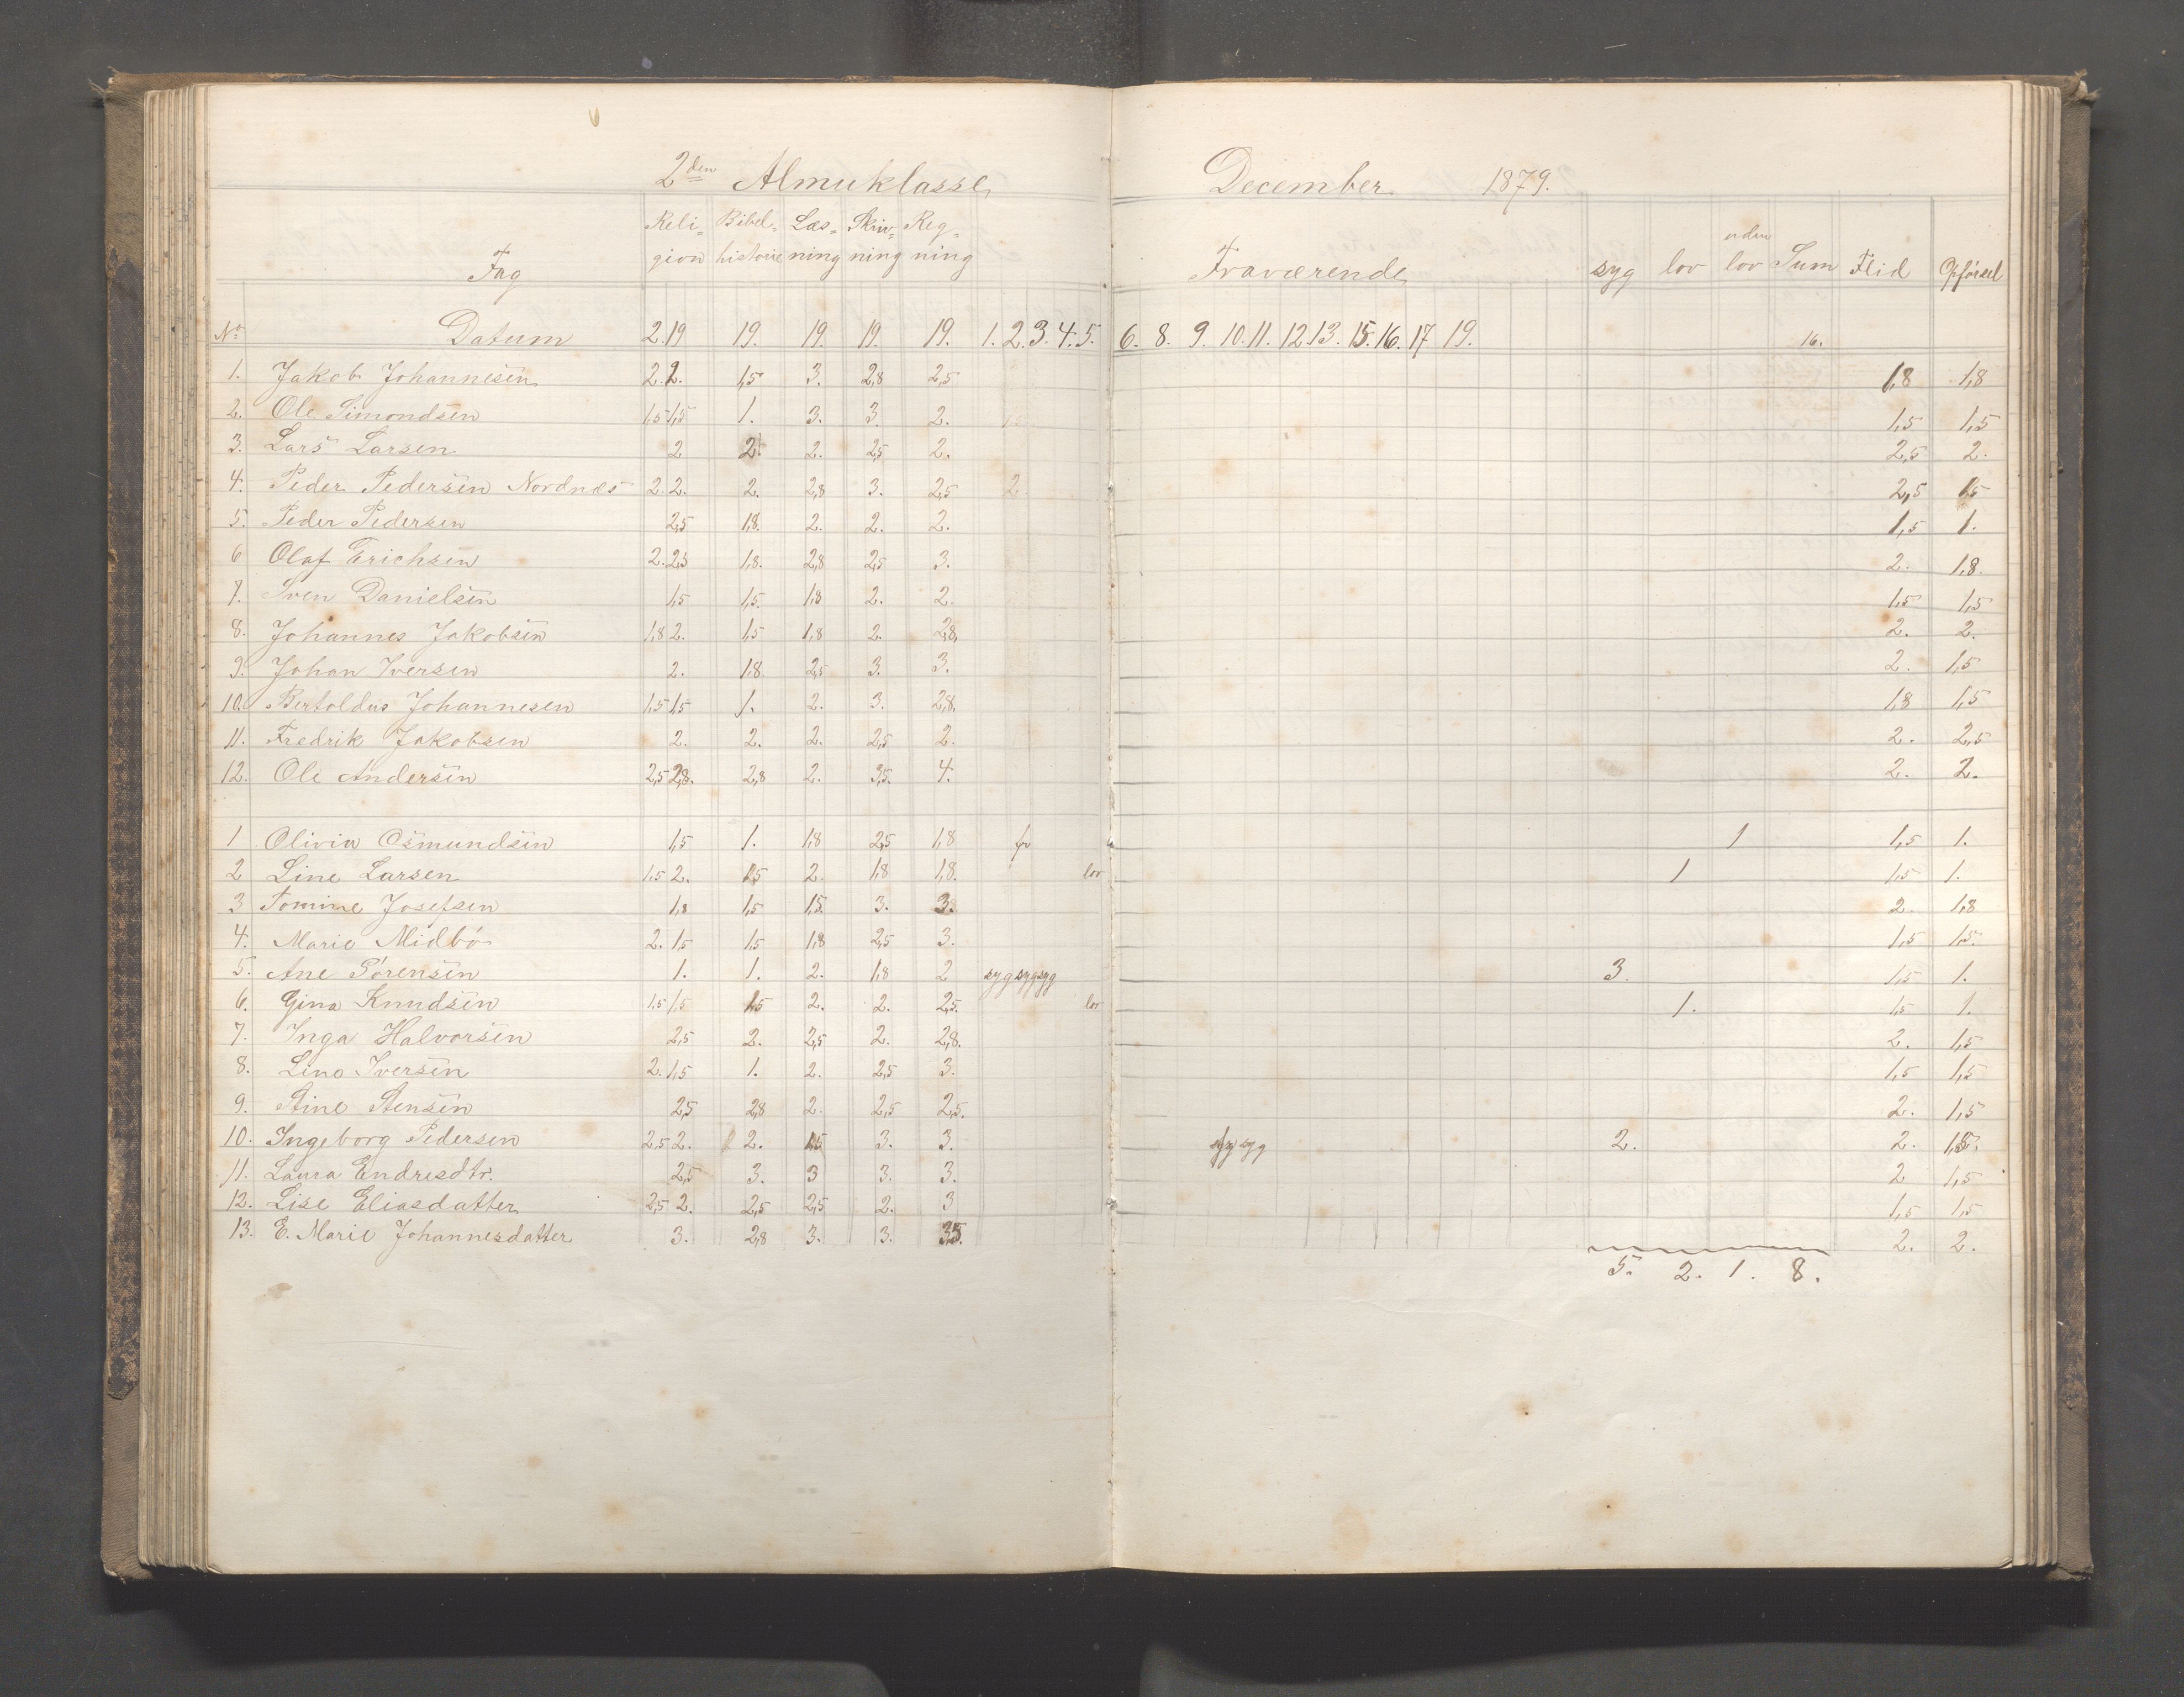 2den Almuklasse December 1879.
Reli= Bibel= Læs= Skriv= Reg= uden
Fag gion historie ning ning ning Fraværende syg lov lov Sum Flid Opførsel
No Datum 2. 19 19. 19. 19. 19. 1. 2. 3. 4. 5. 6. 8. 9. 10. 11. 12. 13. 15. 16. 17 19. 16.
1. Jakob Johannesen 2. 2. 1,5 3. 2,8 2,5 1,8 1,8
2. Ole Simondsen 1,5 1,5 1. 3. 3. 2. 1,5 1,5
3. Lars Larsen 2 2. 2. 2,5 2. 2,5 2.
4. Peder Pedersen Nordnæs 2. 2. 2. 2,8 3. 2,5 2. 2,5 1,5
5. Peder Pedersen 2,5 1,8. 2. 2. 2. 1,5 1.
6 Olaf Erichsen 2. 2,5 1,8. 2,8 2,5 3. 2. 1,8.
7. Sven Danielsen 1,5 1,5. 1,8 2. 2. 1,5 1,5
8. Johannes Jakobsen 1,8 2. 1,5 1,8 2. 2,8. 2. 2.
9. Johan Iversen 2. 1,8 2,5 3. 3. 2. 1,5
10. Bertoldus Johannesen 1,5 1,5 1. 2. 3. 2,8. 1,8 1,5
11. Fredrik Jakobsen 2. 2. 2. 2,5 2. 2. 2,5
12. Ole Andersen 2,5 2,8. 2,8 2. 3,5. 4. 2. 2.
1 Olivia Osmundsen 1,5 1. 1,8 2,5 1,8 fr 1 1,5 1.
2 Line Larsen 1,5 2. 1,5 2. 1,8 1,8. lov 1 1,5 1.
3 Tomine Josefsen 1,8 1,5 1,5. 3. 3. 2. 1,8
4. Marie Midbö 2. 1,5 1,5 1,8 2,5 3. 1,5 1,5.
5. Ane Sörensen 1. 1. 2. 1,8 2 syg syg syg 3. 1,5 1.
6. Gina Knudsen 1,5 1,5 1,5 2. 2. 2,5. lov 1. 1,5 1.
7. Inga Halvorsen 2,5 2. 2,5 2. 2,8. 2. 1,5
8. Line Iversen 2. 1,5 1. 2. 2,5 3. 1,5 1,5
9. Stine Stensen 2,5 2,8 2. 2,5 2,5. 2. 1,5
10. Ingeborg Pedersen 2,5 2. 2. 1,5 3. 3. syg syg 2. 2. 1,8.
11. Laura Endresdtr. 2,5 3. 3 3. 3. 2 1,5
12. Lise Eliasdatter 2,5 2. 2,5 2,5 2. 3 1,5 1,5
13. E. Marie Johannesdatter 3. 2,8 3. 3. 3,5. 2. 2.
5. 2. 1. 8.